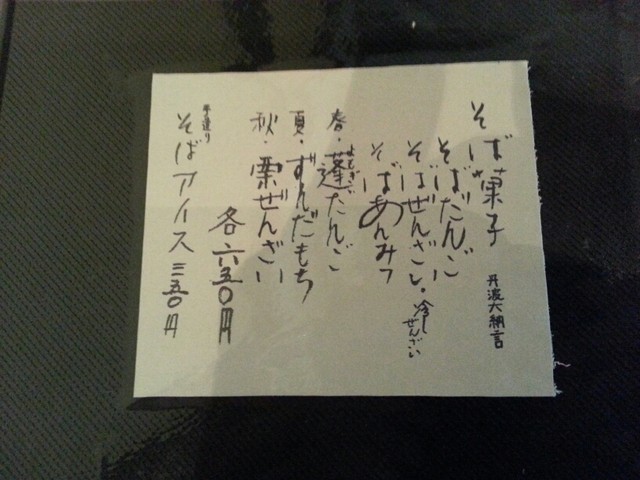 そば菓子 丹波大納言
そばだんご
そばぜんざい・冷しぜんざい
そばあんみつ
春・蓬だんご よもぎ
夏・ずんだもち
秋・栗ぜんざい
各六五〇円
手造り そばアイス 三五〇円